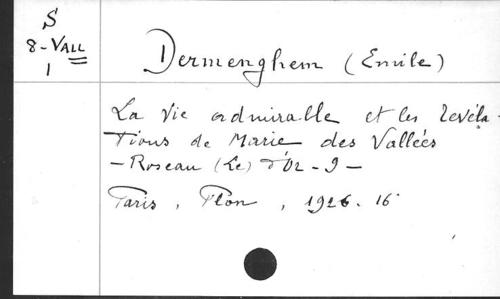 S
8-VALL
1
Dermenghem (Emile)
La vie admirable et les révéla-
tions de Marie des Vallées
- Roseau (Le) d'Or - 9 -
Paris, Plon, 1926. 16°